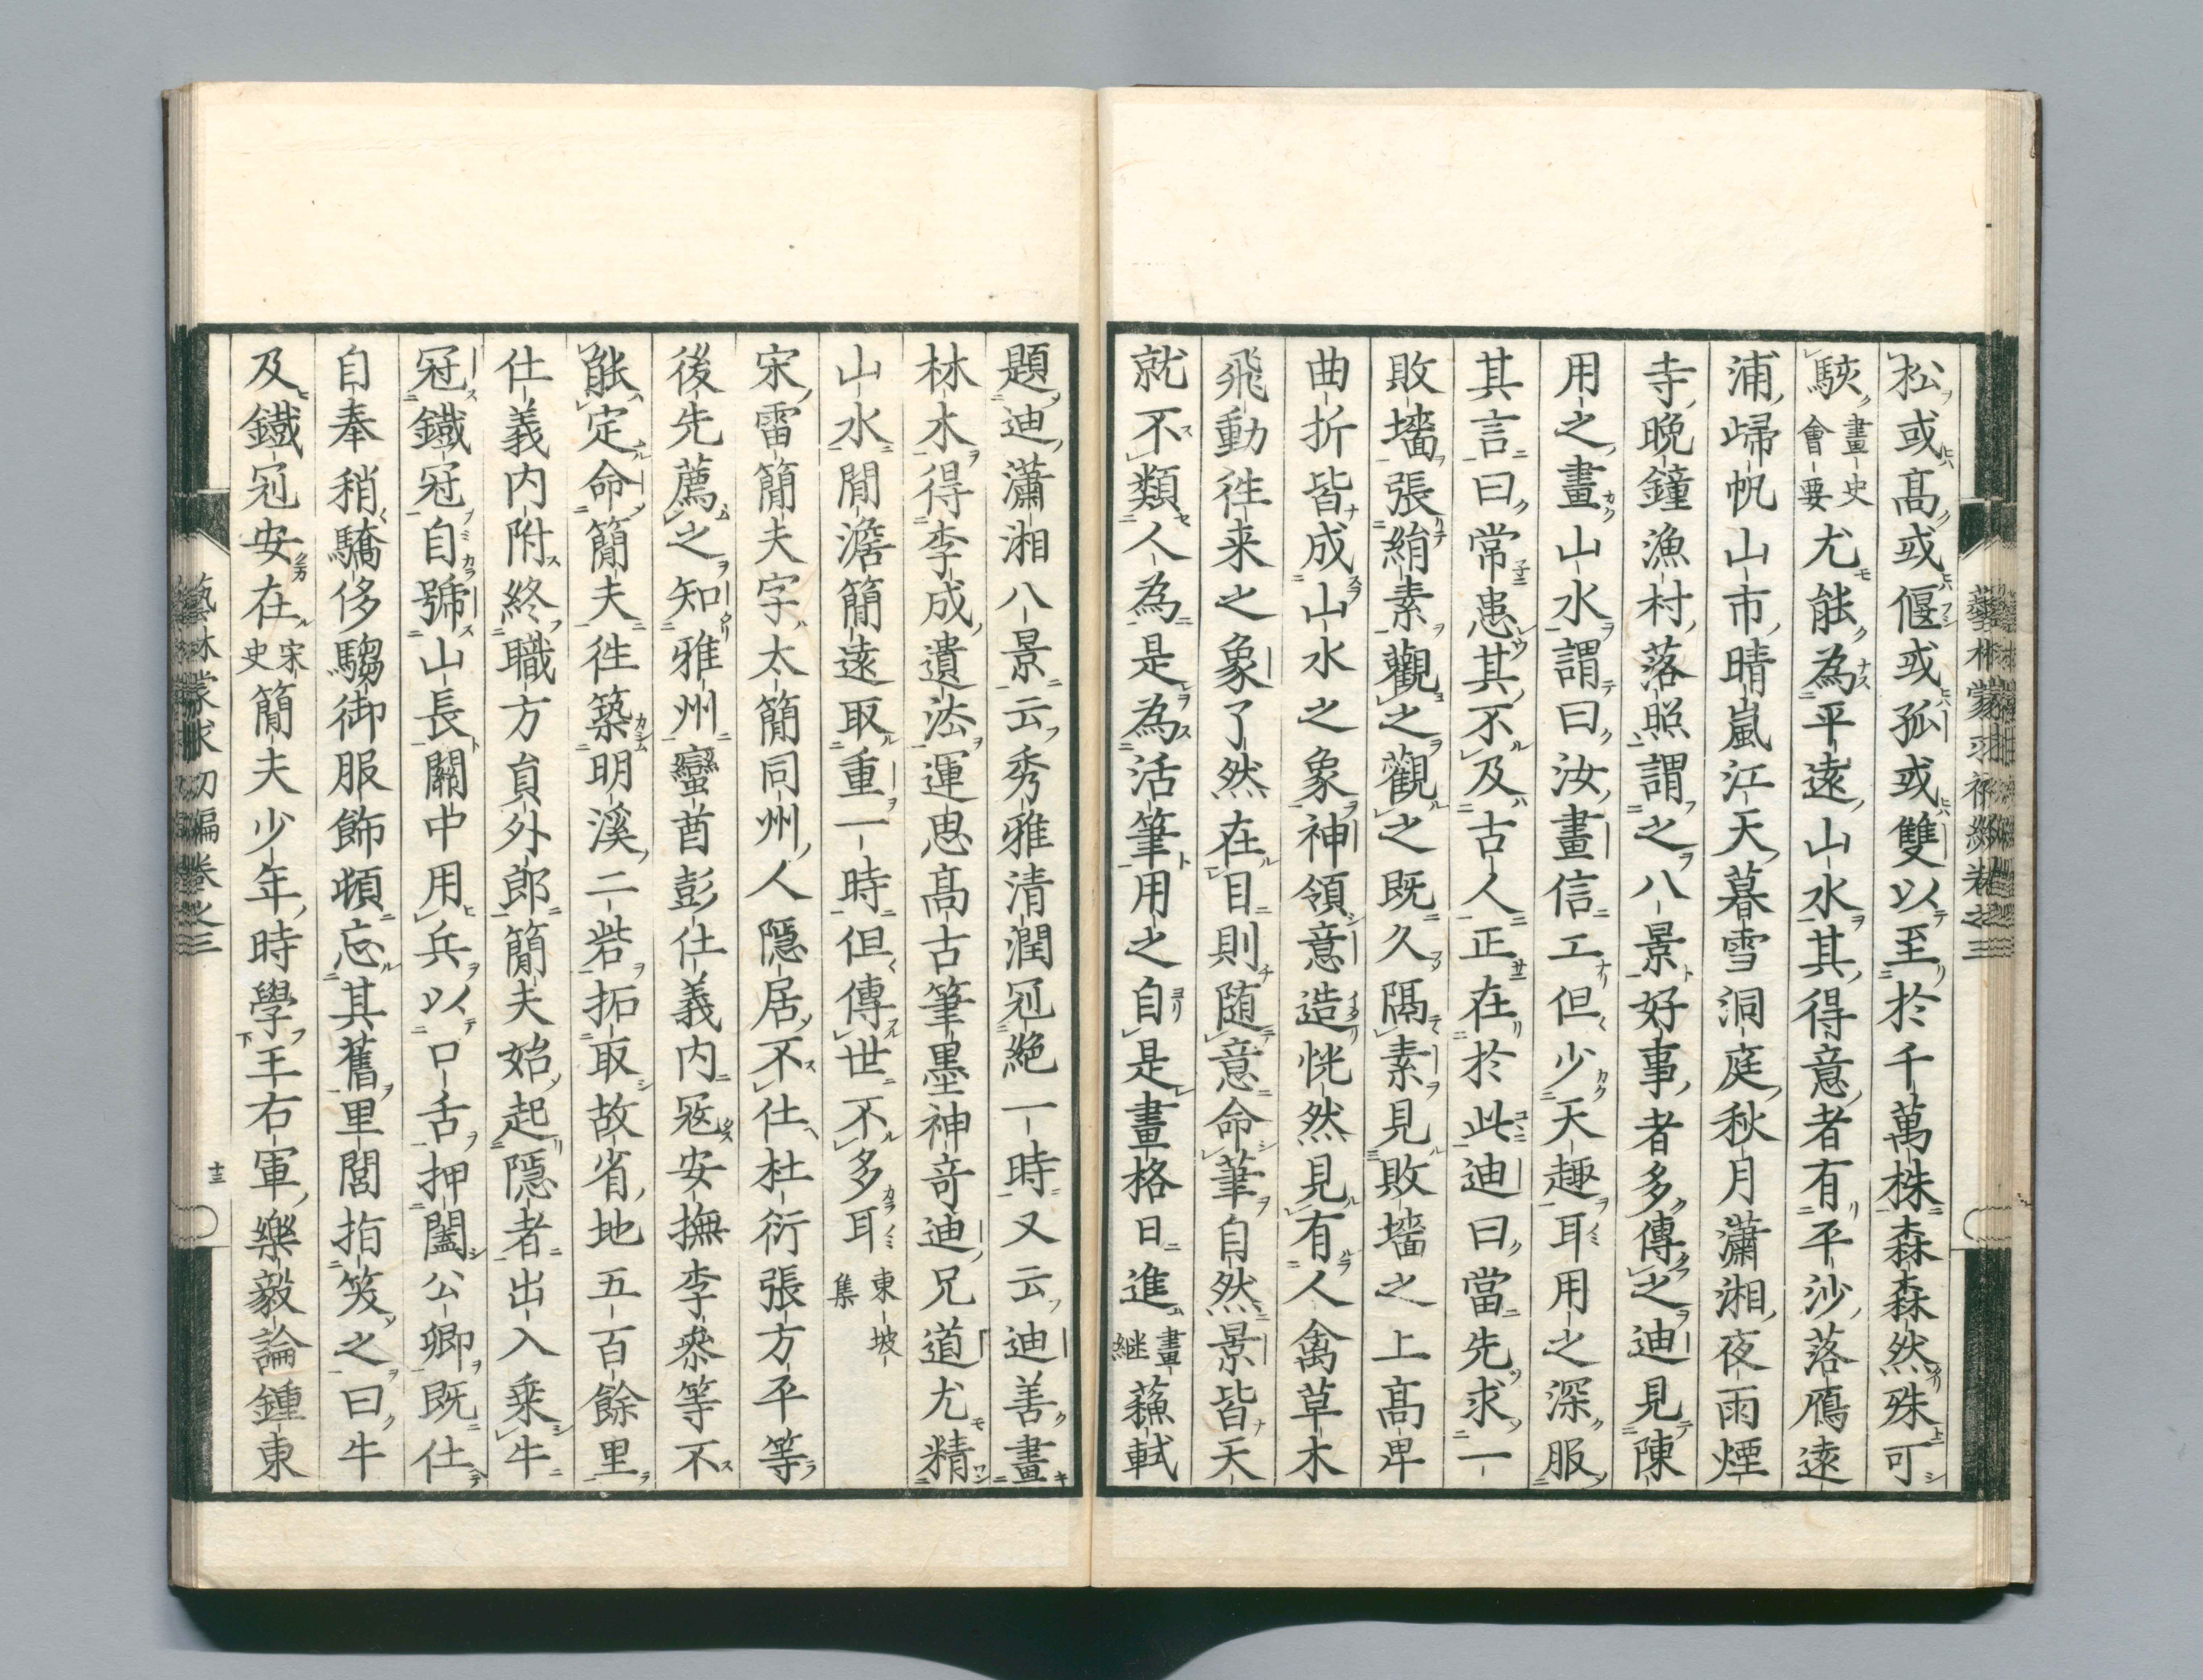 松或髙或偃或孤或雙以至於千萬株森森然殊可
駭畫史會要尤能為平遠山水其得意者有平沙落鴈遠
浦歸帆山市晴嵐江天暮雪洞庭秋月瀟湘夜雨煙
寺晩鐘漁村落照謂之八景好事者多傳之迪見陳
用之畫山水謂曰汝畫信工但少天趣耳用之深服
其言曰常患其不及古人正在於此迪曰當先求一
敗墻張絹素觀之觀之既久隔素見敗墻之上髙卑
曲折皆成山水之象神領意造恍然見有人禽草木
飛動徃来之象了然在目則随意命筆自然景皆天
就不類人為是為活筆用之自是畫格日進畫継蘓軾
題迪瀟湘八景云秀雅清潤冠絶一時又云迪善畫
林木得李成遺法運思髙古筆墨神竒迪兄道尤精
山水閒澹簡遠取重一時但傳世不多耳東坡集
宋雷簡夫字太簡同州人隱居不仕杜衍張方平等
後先薦之知雅州蠻酋彭仕義内寇安撫李叅等不
能定命簡夫徃築明溪二砦拓取故省地五百餘里
仕義内附終職方員外郎簡夫始起隱者出入乗牛
冠鐵冠自號山長關中用兵以口舌押闔公卿既仕
自奉稍驕侈騶御服飾頓忘其舊里閭指笑之曰牛
及鐵冠安在宋史簡夫少年時學王右軍樂毅論鍾東
藝林蒙求初編巻之三
十三